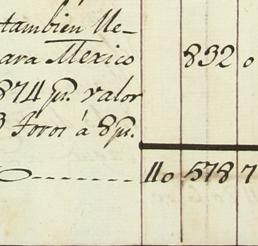 tambien lle-
ara Mexico 832 0
874 ps. valor
3 Toros á 8 ps.
110 578 7